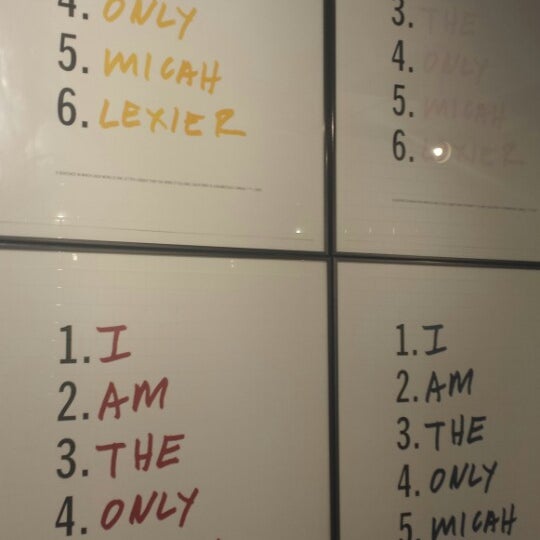 4. ONLY
5. MICAH
6. LEXIER
3. THE
4. ONLY
5. MICAH
6. LEXIER
1. I
2. AM
3. THE
4. ONLY
1. I
2. AM
3. THE
4. ONLY
5. MICAH